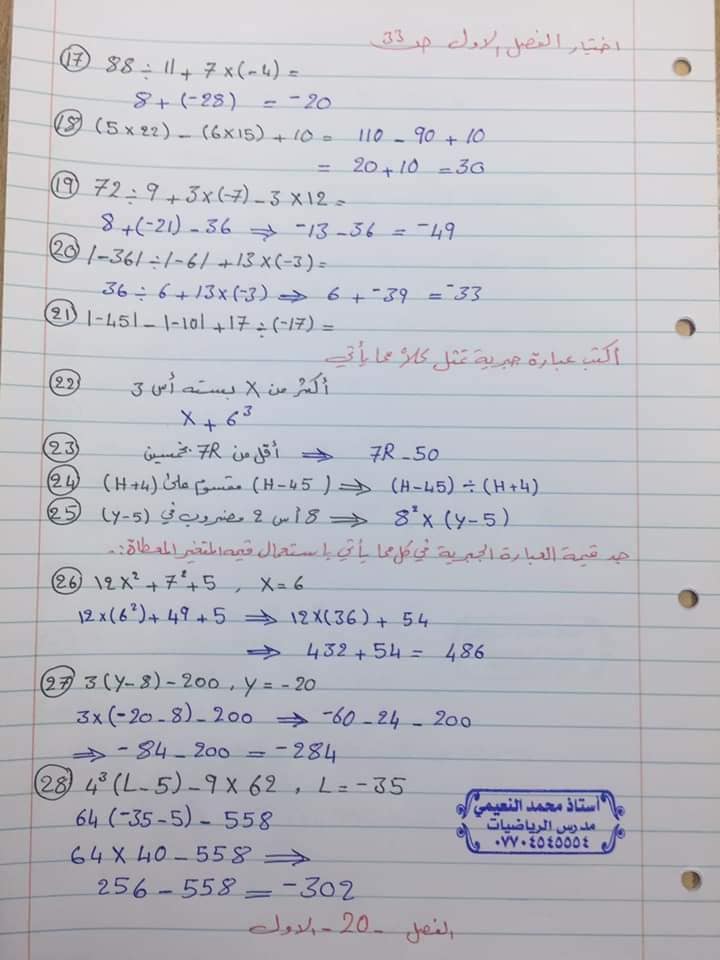 اختبار الفصل الاول ص 33
(17) 88 ÷ 11 + 7 × (-4) =
8 + (-28) = -20
(18) (5 × 22) - (6 × 15) + 10 = 110 - 90 + 10
= 20 + 10 = 30
(19) 72 ÷ 9 + 3 × (-7) - 3 × 12 =
8 + (-21) - 36 ⇒ -13 - 36 = -49
(20) |-36| ÷ |-6| + 13 × (-3) =
36 ÷ 6 + 13 × (-3) ⇒ 6 + -39 = -33
(21) |-45| - |-10| + 17 ÷ (-17) =
اكتب عبارة جبرية تمثل كلاً مما يأتي
(22) أكثر من X بسته أس 3
X + 6³
(23) أقل من 7R بخمسين ⇒ 7R - 50
(24) (H-45) مقسوم على (H+4) ⇒ (H-45) ÷ (H+4)
(25) 8 أس 2 مضروب في (Y-5) ⇒ 8² × (Y-5)
جد قيمة العبارة الجبرية في كل مما يأتي باستعمال قيمه المتغير المعطاة:-
(26) 12X² + 7² + 5 , X = 6
12×(6²) + 49 + 5 ⇒ 12×(36) + 54
⇒ 432 + 54 = 486
(27) 3(Y-8) - 200 , Y = -20
3×(-20-8) - 200 ⇒ -60 - 24 - 200
⇒ -84 - 200 = -284
(28) 4³(L-5) - 9 × 62 , L = -35
64(-35-5) - 558
64 × 40 - 558 ⇒
256 - 558 = -302
أستاذ محمد النعيمي
مدرس الرياضيات
٠٧٧٠٤٥٤٥٥٥٤
الفصل - 20 - الاول